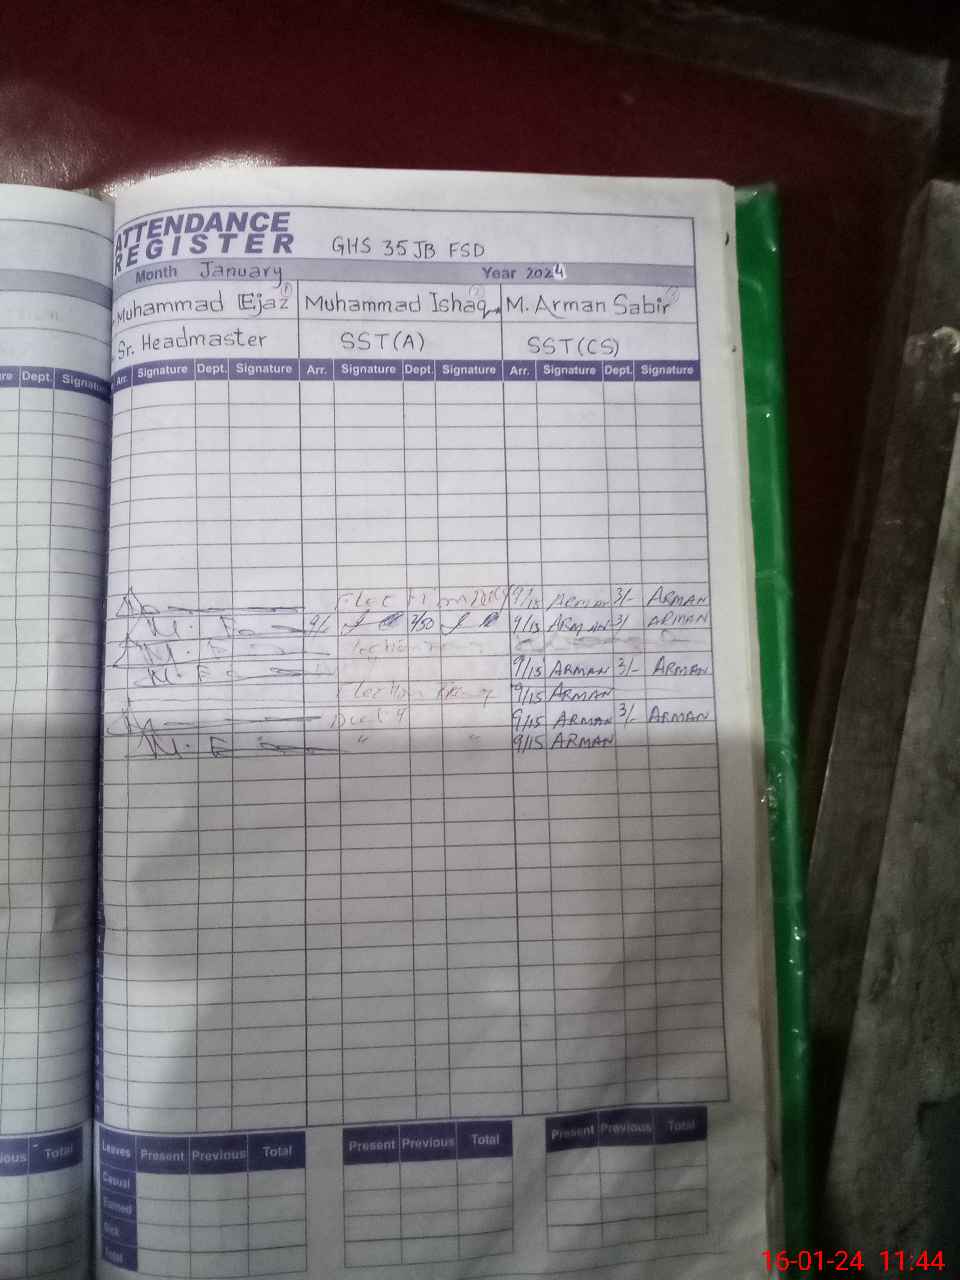 ATTENDANCE
REGISTER GHS 35 JB FSD
Month January Year 2024
Muhammad Ejaz (1) Muhammad Ishaq (2) M. Arman Sabir
Sr. Headmaster SST(A) SST(CS)
Dept. Signature Arr. Signature Dept. Signature Arr. Signature Dept. Signature Arr. Signature Dept. Signature
9/15 ARMAN 3/- ARMAN
9/15 ARMAN 3/ ARMAN
9/15 ARMAN 3/- ARMAN
9/15 ARMAN
9/15 ARMAN 3/- ARMAN
" " 9/15 ARMAN
Total Leaves Present Previous Total Present Previous Total Present Previous Total
Casual
Earned
Sick
Total
16-01-24 11:44